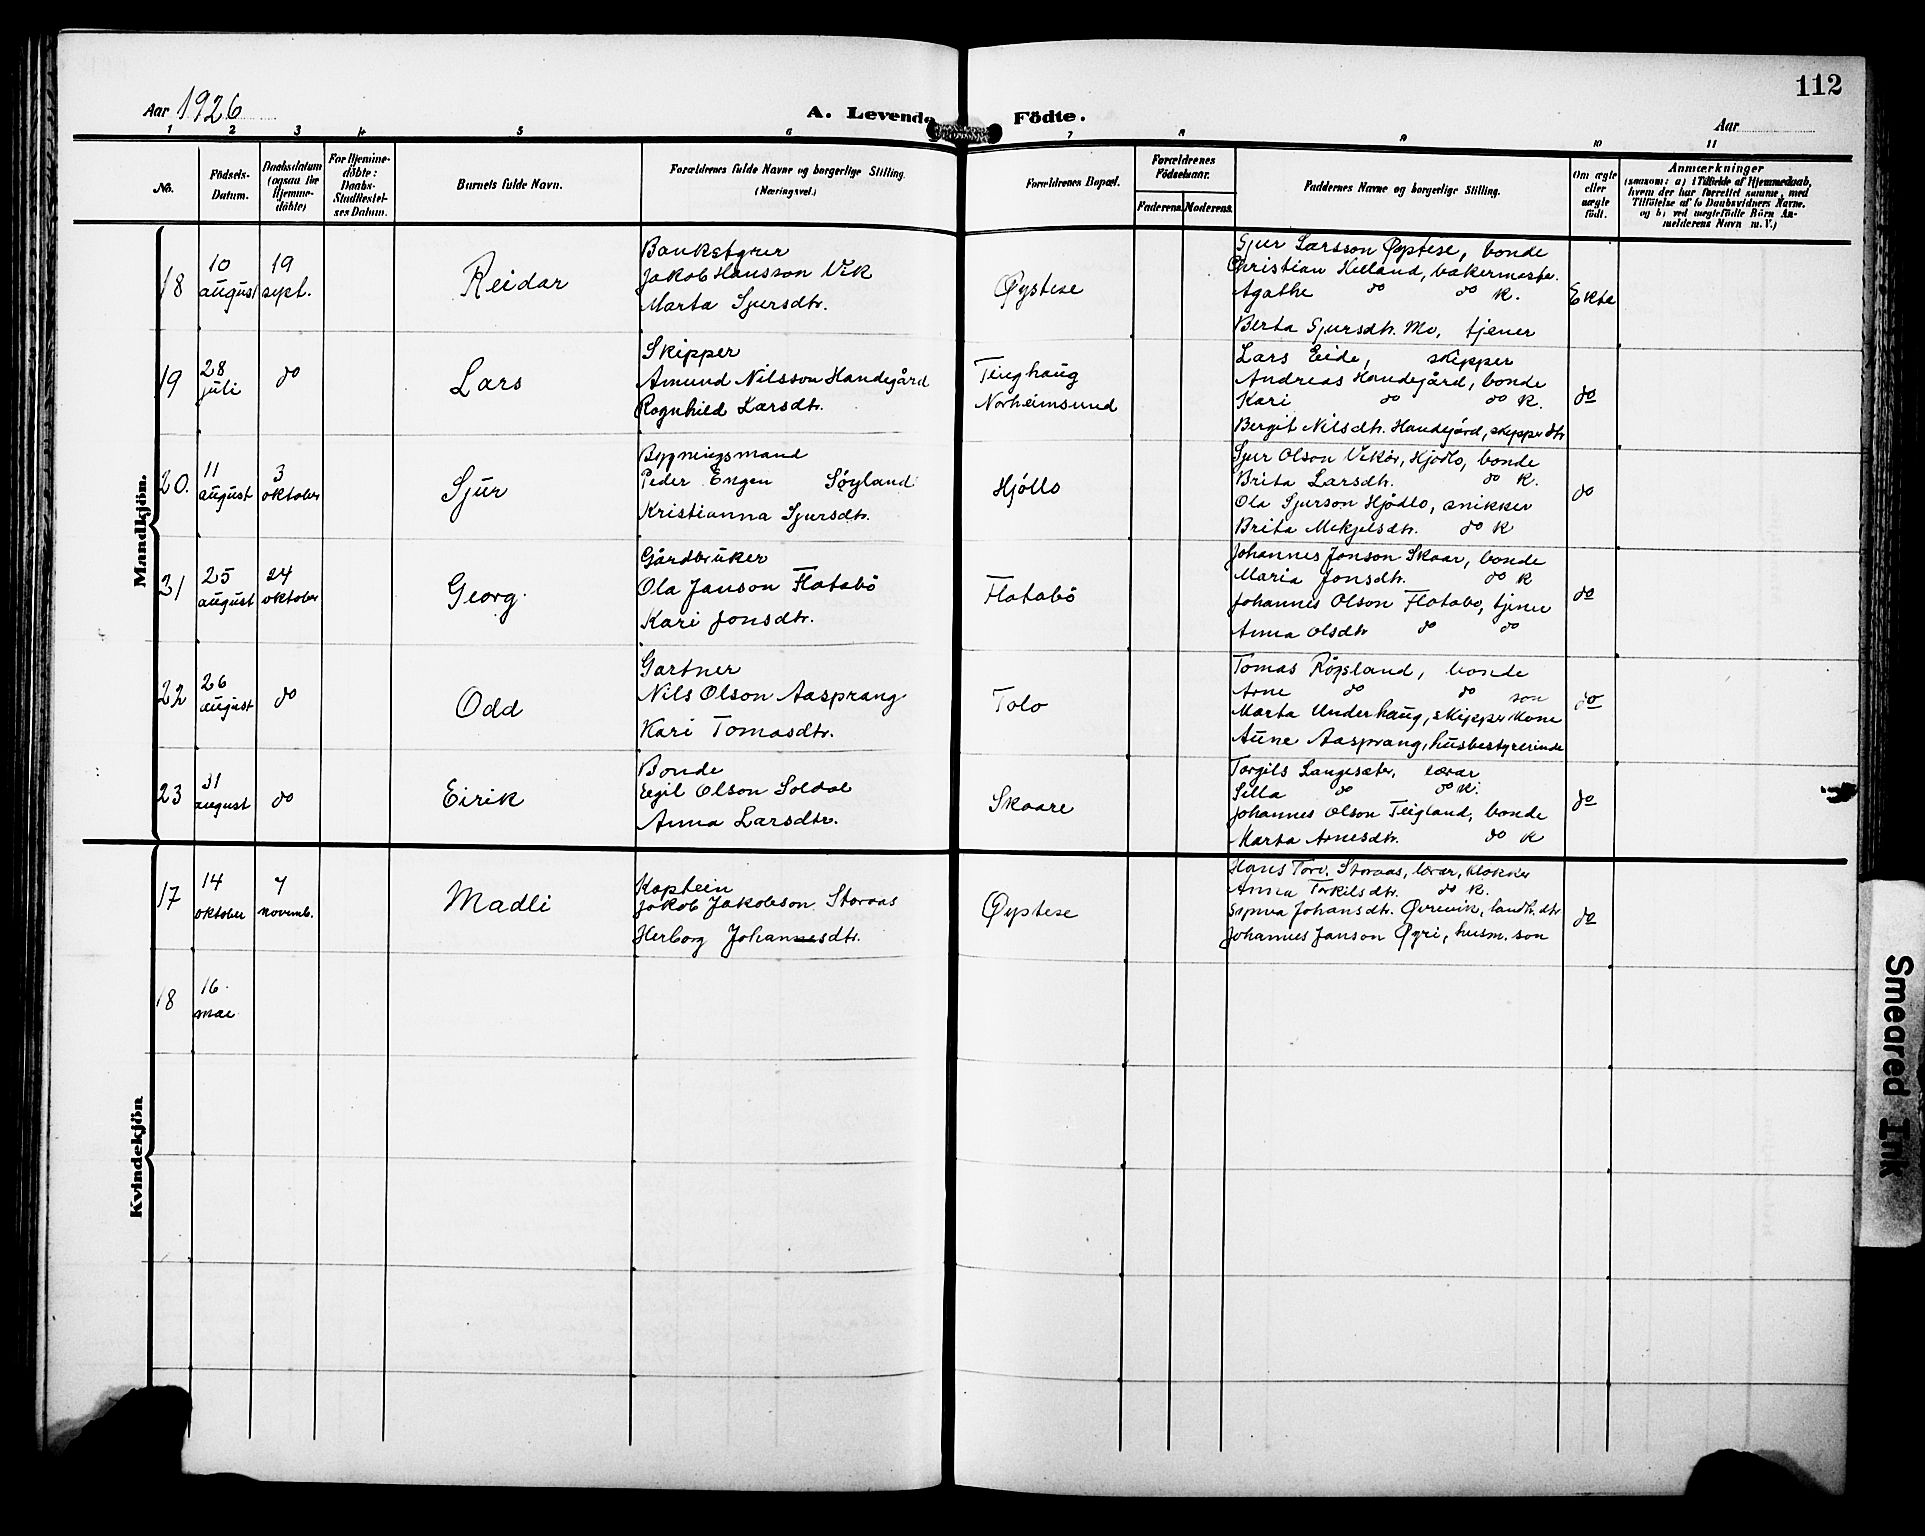 112
Aar 1926
A. Levende Födte.
Aar
1 2 3 4 5 6 7 8 9 10 11
No.
Födsels-Datum.
Daabsdatum (ogsaa for Hjemme-döbte)
For Hjemme-döbte: Daabs-Stadfæstel-ses Datum.
Barnets fulde Navn.
Forældrenes fulde Navne og borgerlige Stilling. (Næringsvei.)
Forældrenes Bopæl.
Forældrenes Födselsaar.
Faderens. Moderens.
Faddernes Navne og borgerlige Stilling.
Om ægte eller uægte födt.
Anmærkninger
(saasom: a) i Tilfælde af Hjemmedaab, hvem der har forrettet samme, med Tilföielse af to Daabsvidners Navne. og b) ved uægtefödte Börn An-melderens Navn m. V.)
Mandkjön.
18
10 august
19 sept.
Reidar
Bankstyrer
Jakob Hansson Vik
Marta Sjursdtr.
Øystese
Sjur Larsson Øystese, bonde
Christian Hetland, bakermester.
Agathe do do K.
Berta Sjursdtr. Mo, tjener
Ekte
19
28 juli
do
Lars
Skipper
Amund Nilsson Handegård
Ragnhild Larsdtr.
Tinghaug
Norheimsund
Lars Eide, skipper
Andreas Handegård, bonde
Kari do do K.
Bergit Nilsdtr. Handegård, skipper dtr
do
20.
11 august
3 oktober
Sjur
Bygningsmand
Peder Engen Søyland
Kristianna Sjursdtr.
Hjöllo
Sjur Olson Vikör, Hjödlo, bonde
Brita Larsdtr. do K.
Ola Sjurson Hjödlo, snikker
Brita Mikjelsdtr. do K
do
21
25 august
24 oktober
Georg.
Gårdbruker
Ola Janson Flotabö
Kari Jonsdtr.
Flotabö
Johannes Jonson Skaar, bonde
Maria Jonsdtr. do K
Johannes Olson Flotabö, tjener
Anna Olsdtr do do
do
22
26 august
do
Odd
Gartner
Nils Olson Aasprang
Kari Tomasdtr.
Tolo
Tomas Röysland, bonde
Arne do do son
Marta Underhaug, skipper kone
Aune Aasprang, husbestyrerinde
do
23
31 august
do
Eirik
Bonde
Eigil Olson Soldal
Anna Larsdtr.
Skaare
Torgils Langesæter, lærar
Silla do do K.
Johannes Olson Teigland, bonde
Marta Arnesdtr. do K
do
Kvindekjön
17
14 oktober
7 novemb.
Madli
Kaptein
Jakob Jakobson Storaas
Herborg Johannesdtr.
Øystese
Hans Torv. Storaas, lærar, klokker
Anna Torkilsdtr. do K.
Synva Johansdtr. Øvrevik, landh. dtr
Johannes Janson Øyri, husm. son
do
18
16. mai
Smeared Ink